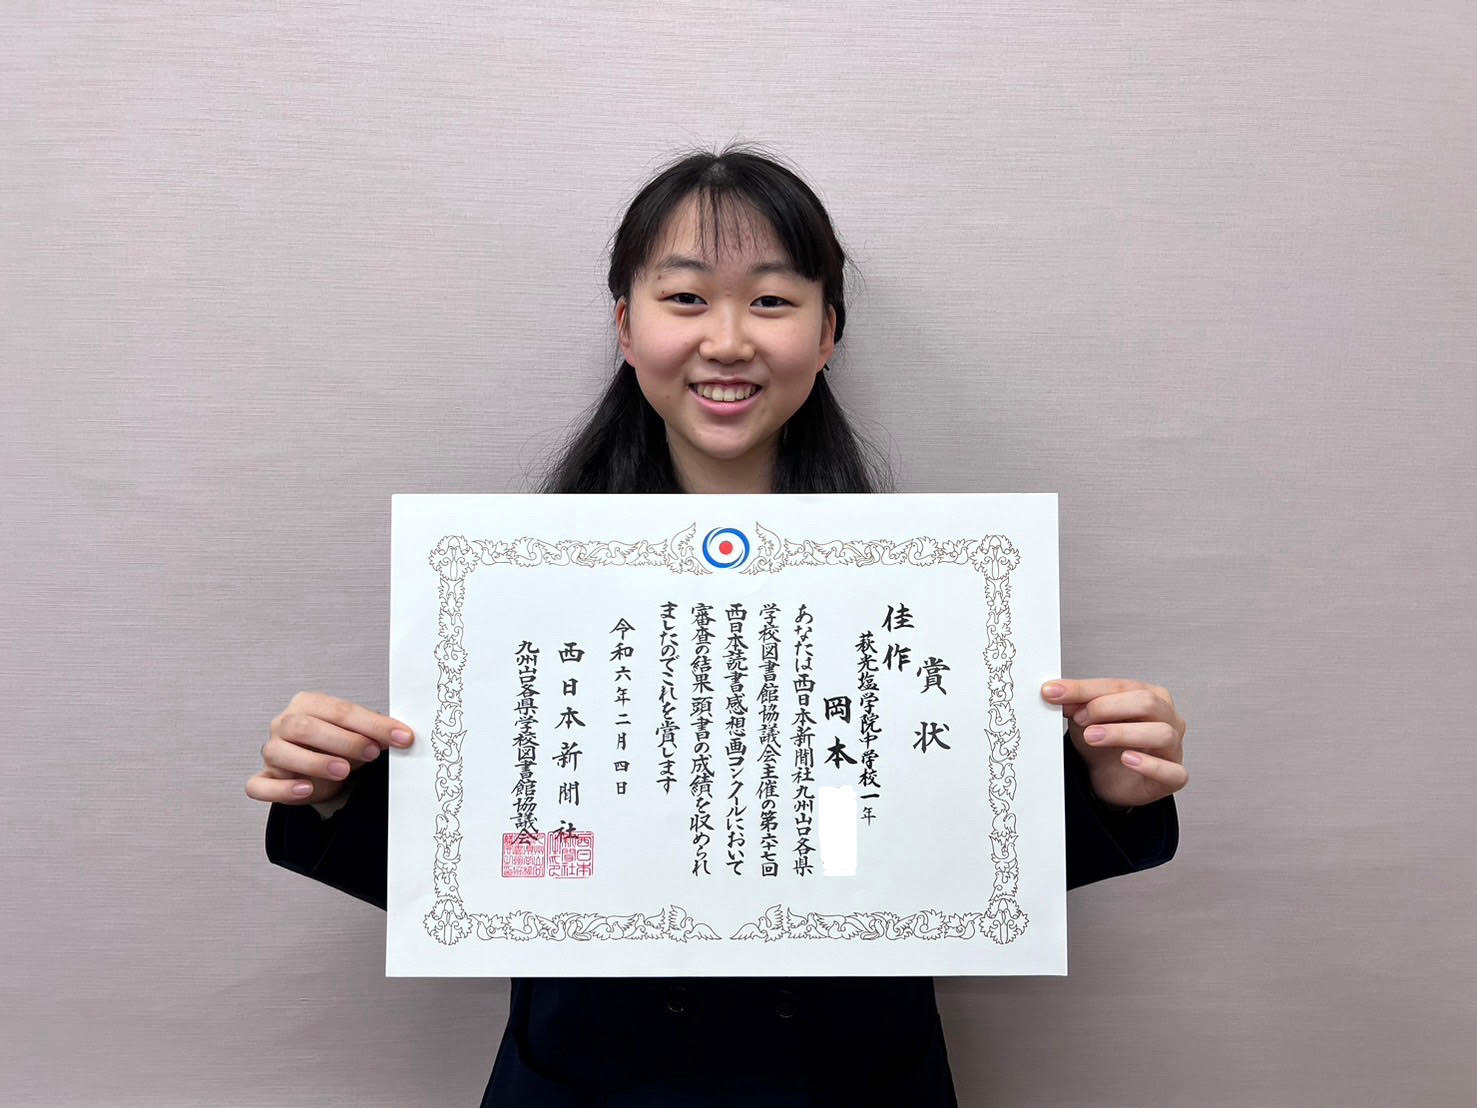 賞状
佳作
萩光塩学院中学校一年
岡本
あなたは西日本新聞社九州山口各県
学校図書館協議会主催の第六十七回
西日本読書感想画コンクールにおいて
審査の結果頭書の成績を収められ
ましたのでこれを賞します
令和六年二月四日
西日本新聞社
九州山口各県学校図書館協議会